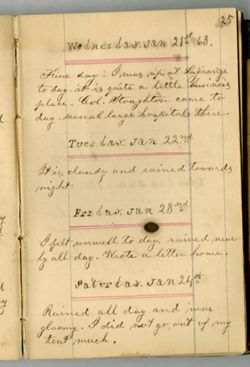 25
Wednesday. Jan 21st 63.
Fine day. I was up at Lagrange
to day. it is quite a little business
place. Col. Stoughton came to
day several large hospitals there.
Tuesday. Jan 22nd
It is cloudy and rained towards
night.
Friday. Jan 23nd
I felt unwell to day. rained near
ly all day. Wrote a letter home.
Saterday. Jan 24th.
Rained all day and was
gloomy. I did not go out of my
tent much.